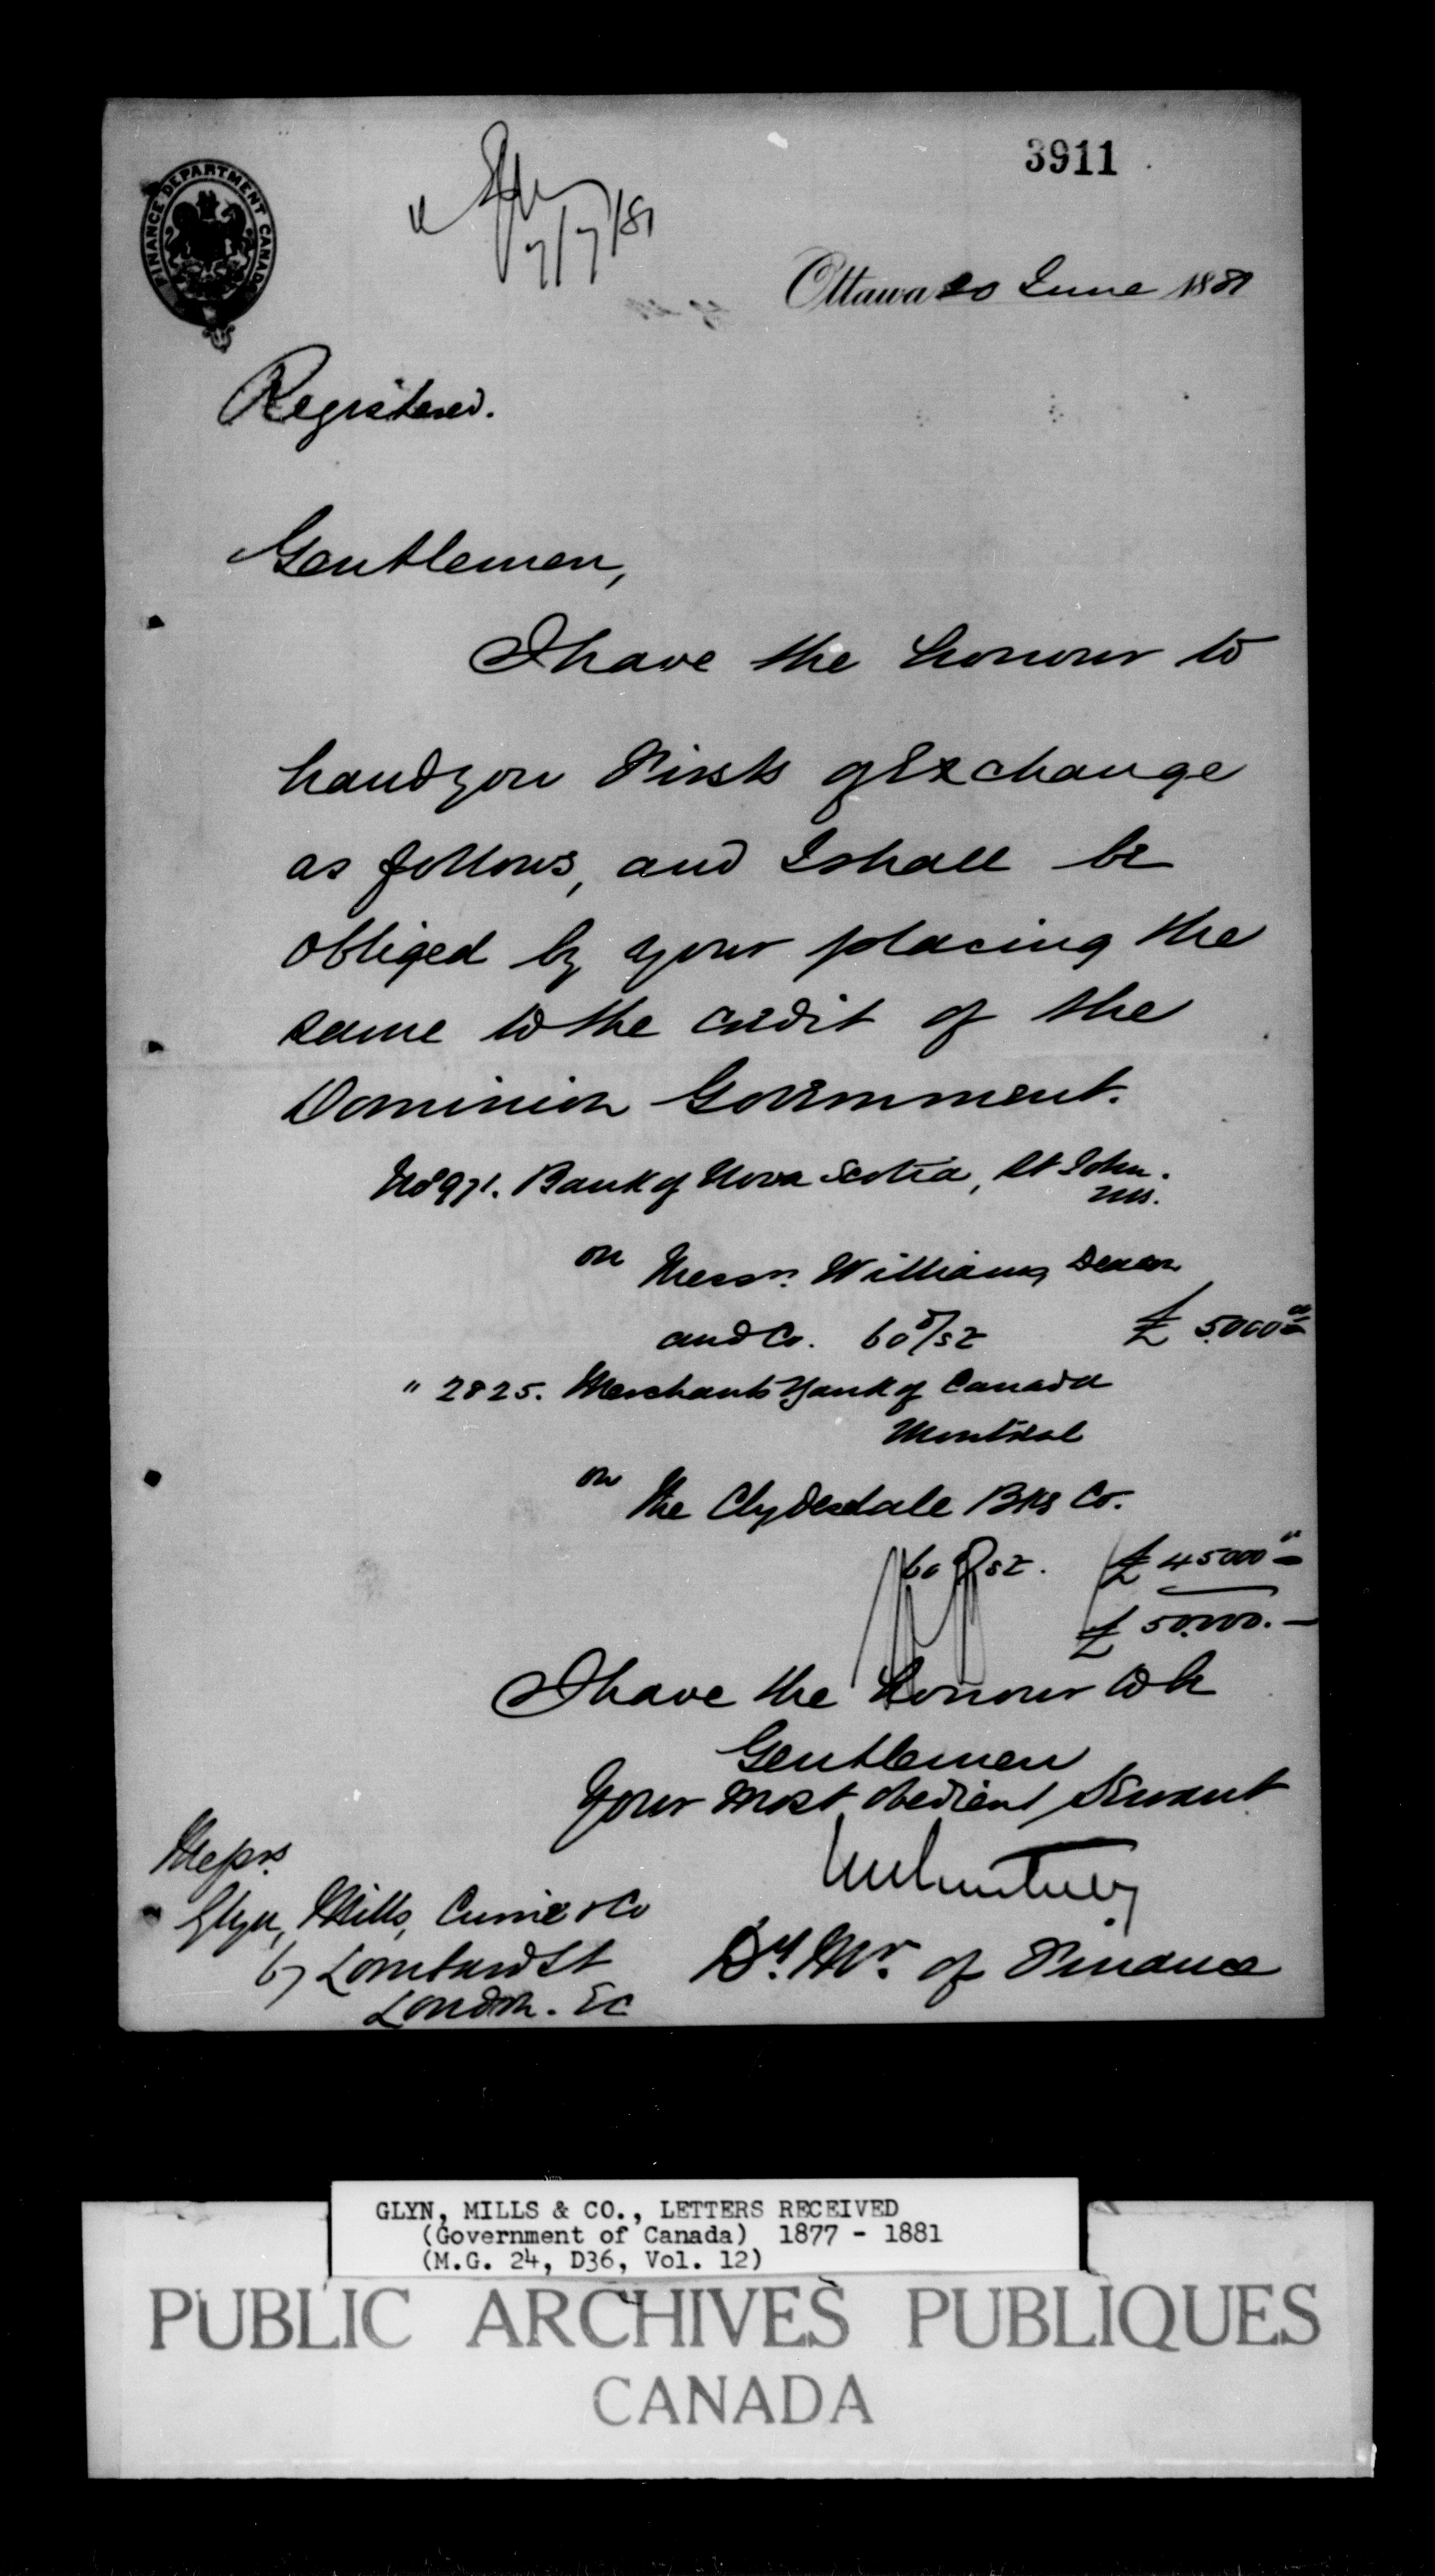 3911
FINANCE DEPARTMENT CANADA
7/7/81
Ottawa 20 June 1881
Registered.
Gentlemen,
I have the honour to
hand you Firsts of Exchange
as follows, and I shall be
obliged by your placing the
same to the credit of the
Dominion Government.
No 971. Bank of Nova Scotia, St John.
NB.
on Messrs. Williams Deacon
and Co. 60 d/st £ 5.000
" 2825. Merchants Bank of Canada
Montreal
on The Clydesdale Bkg Co.
60 d/st. £ 45000 " -
£ 50.000. -
I have the honour to be
Gentlemen
Your most obedient Servant
Messrs.
Glyn, Mills, Currie & Co
67 Lombard St
London. EC
Dy. Mr. of Finance
GLYN, MILLS & CO., LETTERS RECEIVED
(Government of Canada) 1877 - 1881
(M.G. 24, D36, Vol. 12)
PUBLIC ARCHIVES PUBLIQUES
CANADA